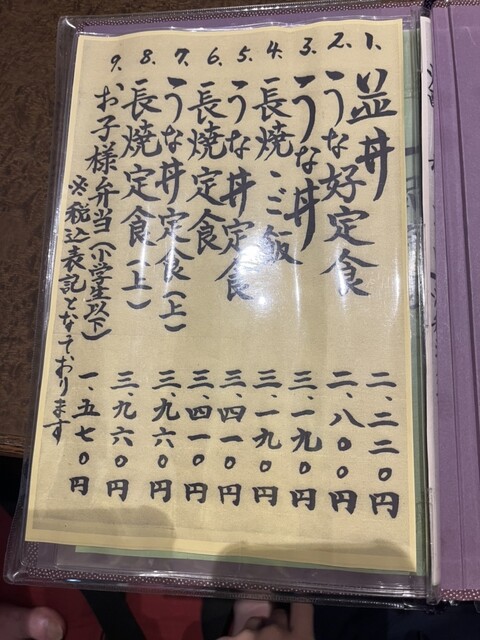 1. 並丼 二、二二〇円
2. うな好定食 二、八〇〇円
3. うな丼 三、一九〇円
4. 長焼・ご飯 三、一九〇円
5. うな丼定食 三、四一〇円
6. 長焼定食 三、四一〇円
7. うな丼定食(上) 三、九六〇円
8. 長焼定食(上) 三、九六〇円
9. お子様弁当(小学生以下) 一、五七〇円
※税込表記となっております